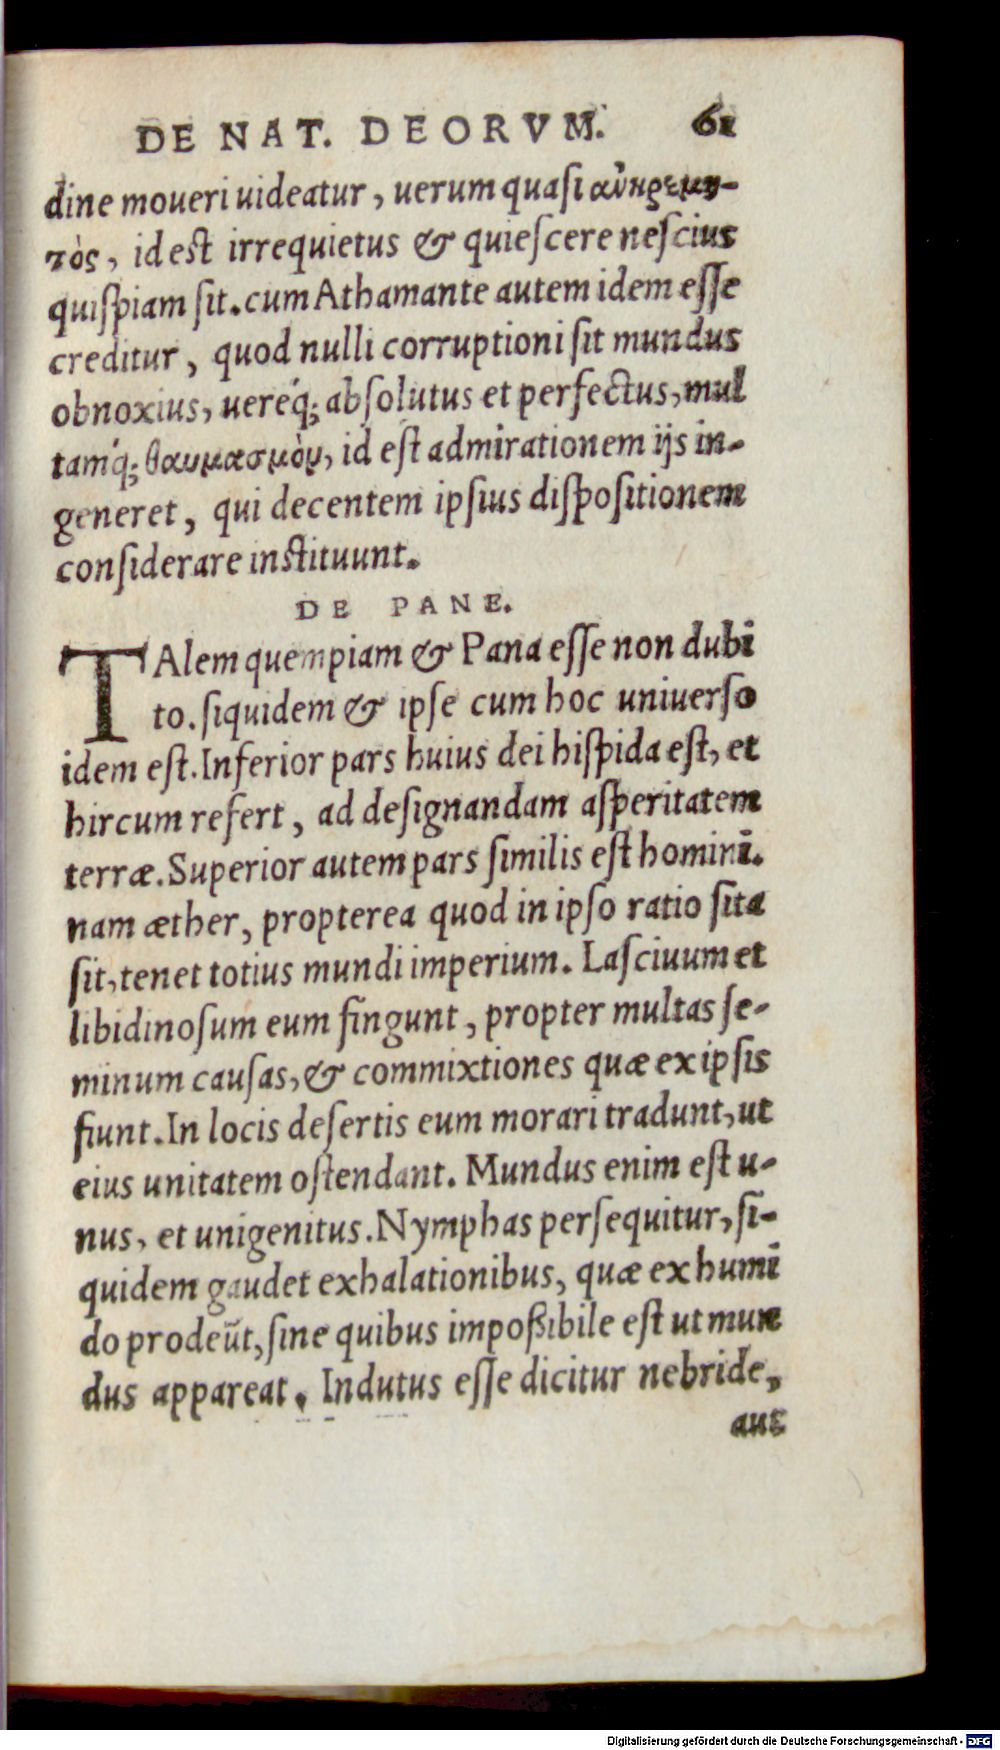 DE NAT. DEORVM. 61
dine moueri uideatur, uerum quasi
τὸς, id est irrequietus & quiescere nescius
quispiam sit. cum Athamante autem idem esse
creditur, quod nulli corruptioni sit mundus
obnoxius, ueréq; absolutus et perfectus, mul
tamq́; θαυμασμὸν, id est admirationem ijs in-
generet, qui decentem ipsius dispositionem
considerare instituunt.
DE PANE.
TAlem quempiam & Pana esse non dubi
to. siquidem & ipse cum hoc uniuerso
idem est. Inferior pars huius dei hispida est, et
hircum refert, ad designandam asperitatem
terræ. Superior autem pars similis est homini.
nam æther, propterea quod in ipso ratio sita
sit, tenet totius mundi imperium. Lasciuum et
libidinosum eum fingunt, propter multas se-
minum causas, & commixtiones quæ ex ipsis
fiunt. In locis desertis eum morari tradunt, ut
eius unitatem ostendant. Mundus enim est u-
nus, et unigenitus. Nymphas persequitur, si-
quidem gaudet exhalationibus, quæ ex humi
do prodeūt, sine quibus impoßibile est ut mun
dus appareat. Indutus esse dicitur nebride,
aut
Digitalisierung gefördert durch die Deutsche Forschungsgemeinschaft - DFG